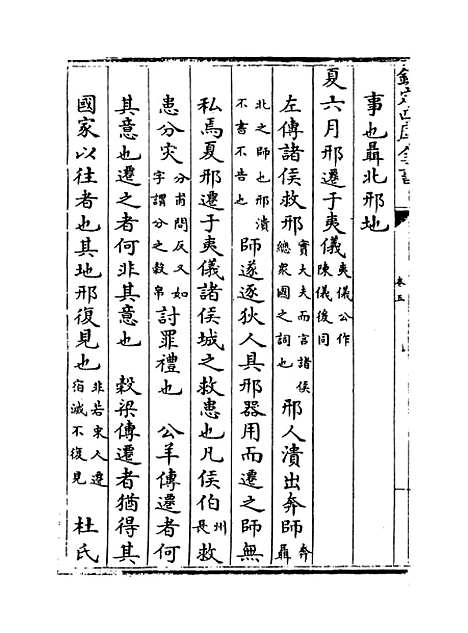 欽定四庫全書
卷五
事也聶北邢地
夏六月邢遷于夷儀夷儀公作陳儀後同
左傳諸侯救邢實大夫而言諸侯總衆國之詞也邢人潰出奔師奔聶
北之師也邢潰不書不告也師遂逐狄人具邢器用而遷之師無
私焉夏邢遷于夷儀諸侯城之救患也凡侯伯州長救
患分災分甫問反又如字謂分之穀帛討罪禮也 公羊傳遷者何
其意也遷之者何非其意也 穀梁傳遷者猶得其
國家以往者也其地邢復見也非若宋人遷宿滅不復見 杜氏